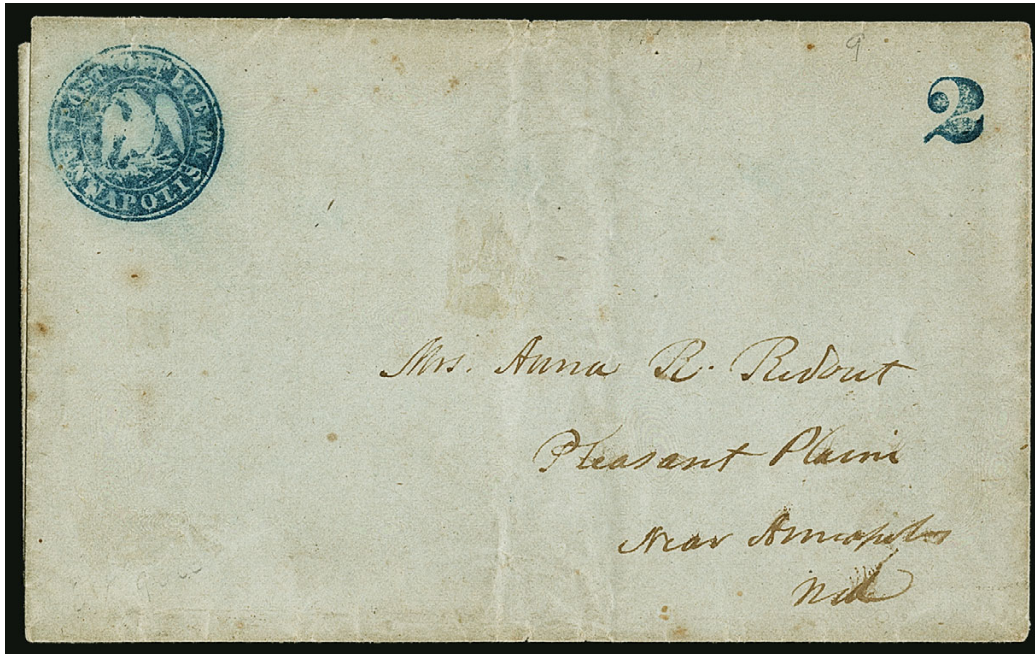 POST OFFICE
ANNAPOLIS Md.
2
9
Mrs. Anna R. Ridout
Pleasant Plains
Near Annapolis
Md